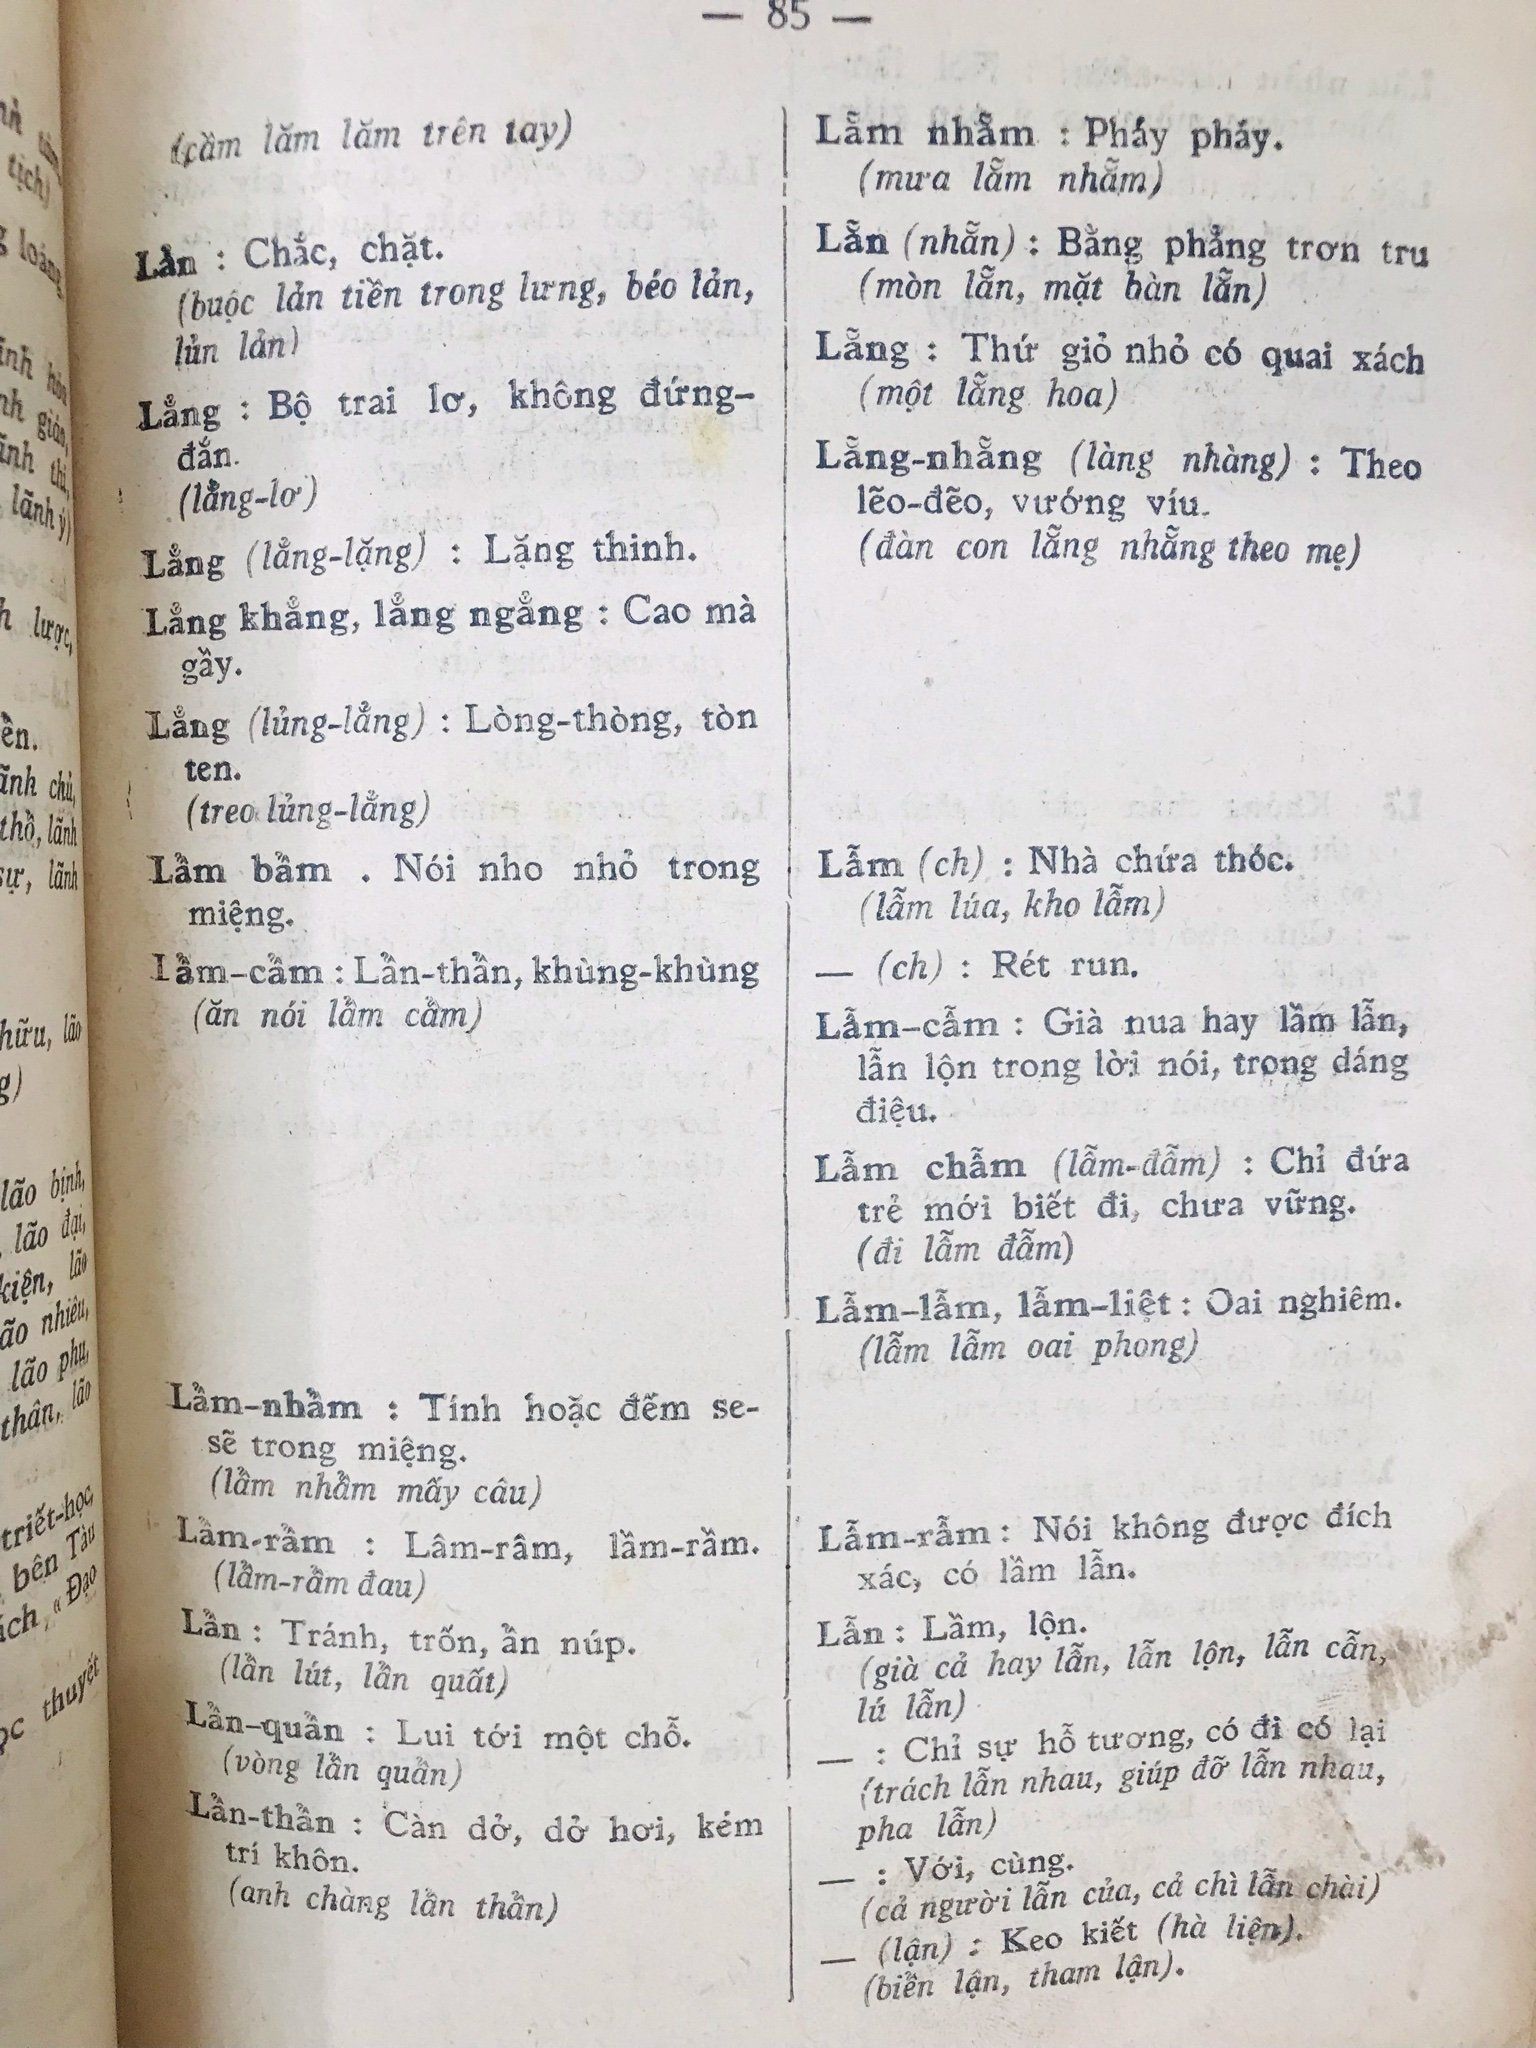 — 85 —
(cầm lăm lăm trên tay)
Lẳn : Chắc, chặt.
(buộc lẳn tiền trong lưng, béo lẳn,
lủn lẳn)
Lẳng : Bộ trai lơ, không đứng-
đắn.
(lẳng-lơ)
Lẳng (lẳng-lặng) : Lặng thinh.
Lẳng khẳng, lẳng ngẳng : Cao mà
gầy.
Lẳng (lủng-lẳng) : Lòng-thòng, tòn
ten.
(treo lủng-lẳng)
Lẩm bẩm . Nói nho nhỏ trong
miệng.
Lẩm-cẩm : Lẩn-thẩn, khùng-khùng
(ăn nói lẩm cẩm)
Lẩm-nhẩm : Tính hoặc đếm se-
sẽ trong miệng.
(lẩm nhẩm mấy câu)
Lẩm-rẩm : Lâm-râm, lầm-rầm.
(lẩm-rẩm đau)
Lẩn : Tránh, trốn, ẩn núp.
(lẩn lút, lẩn quất)
Lẩn-quẩn : Lui tới một chỗ.
(vòng lẩn quẩn)
Lẩn-thẩn : Càn dở, dở hơi, kém
trí khôn.
(anh chàng lẩn thẩn)
Lẵm nhẵm : Pháy pháy.
(mưa lẵm nhẵm)
Lẵn (nhẵn) : Bằng phẳng trơn tru
(mòn lẵn, mặt bàn lẵn)
Lẵng : Thứ giỏ nhỏ có quai xách
(một lẵng hoa)
Lẵng-nhẵng (làng nhàng) : Theo
lẽo-đẽo, vướng víu.
(đàn con lẵng nhẵng theo mẹ)
Lẫm (ch) : Nhà chứa thóc.
(lẫm lúa, kho lẫm)
— (ch) : Rét run.
Lẫm-cẫm : Già nua hay lầm lẫn,
lẫn lộn trong lời nói, trong dáng
điệu.
Lẫm chẫm (lẫm-đẫm) : Chỉ đứa
trẻ mới biết đi, chưa vững.
(đi lẫm đẫm)
Lẫm-lẫm, lẫm-liệt : Oai nghiêm.
(lẫm lẫm oai phong)
Lẫm-rẫm : Nói không được đích
xác, có lầm lẫn.
Lẫn : Lầm, lộn.
(già cả hay lẫn, lẫn lộn, lẫn cẫn,
lú lẫn)
— : Chỉ sự hỗ tương, có đi có lại
(trách lẫn nhau, giúp đỡ lẫn nhau,
pha lẫn)
— : Với, cùng.
(cả người lẫn của, cả chì lẫn chài)
— (lận) : Keo kiết (hà liện).
(biển lận, tham lận).